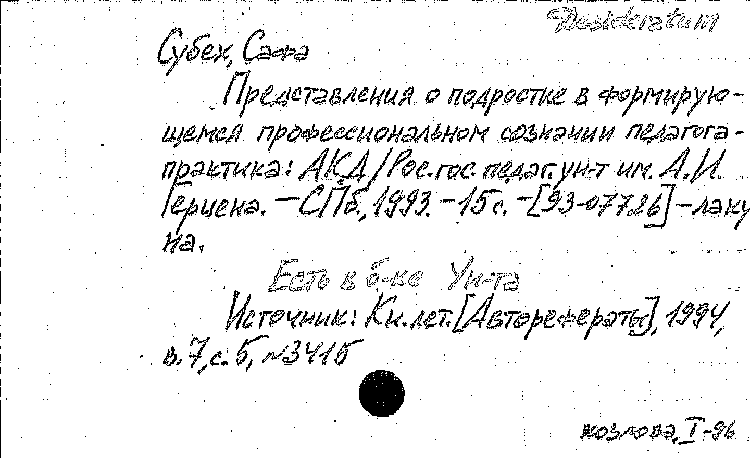 Desideratum
Субех, Сафа
Представления о подростке в формирую-
щемся профессиональном сознании педагога-
практика: АКД/Рос.гос.педаг.ун-т им. А.И.
Герцена. – СПб., 1993. – 15с. – [93-07726] – лаку
на.
Есть в б-ке Ун-та
Источник: Кн.лет.[Авторефераты], 1994,
в.7, с.5, №3415
козлова, I-96